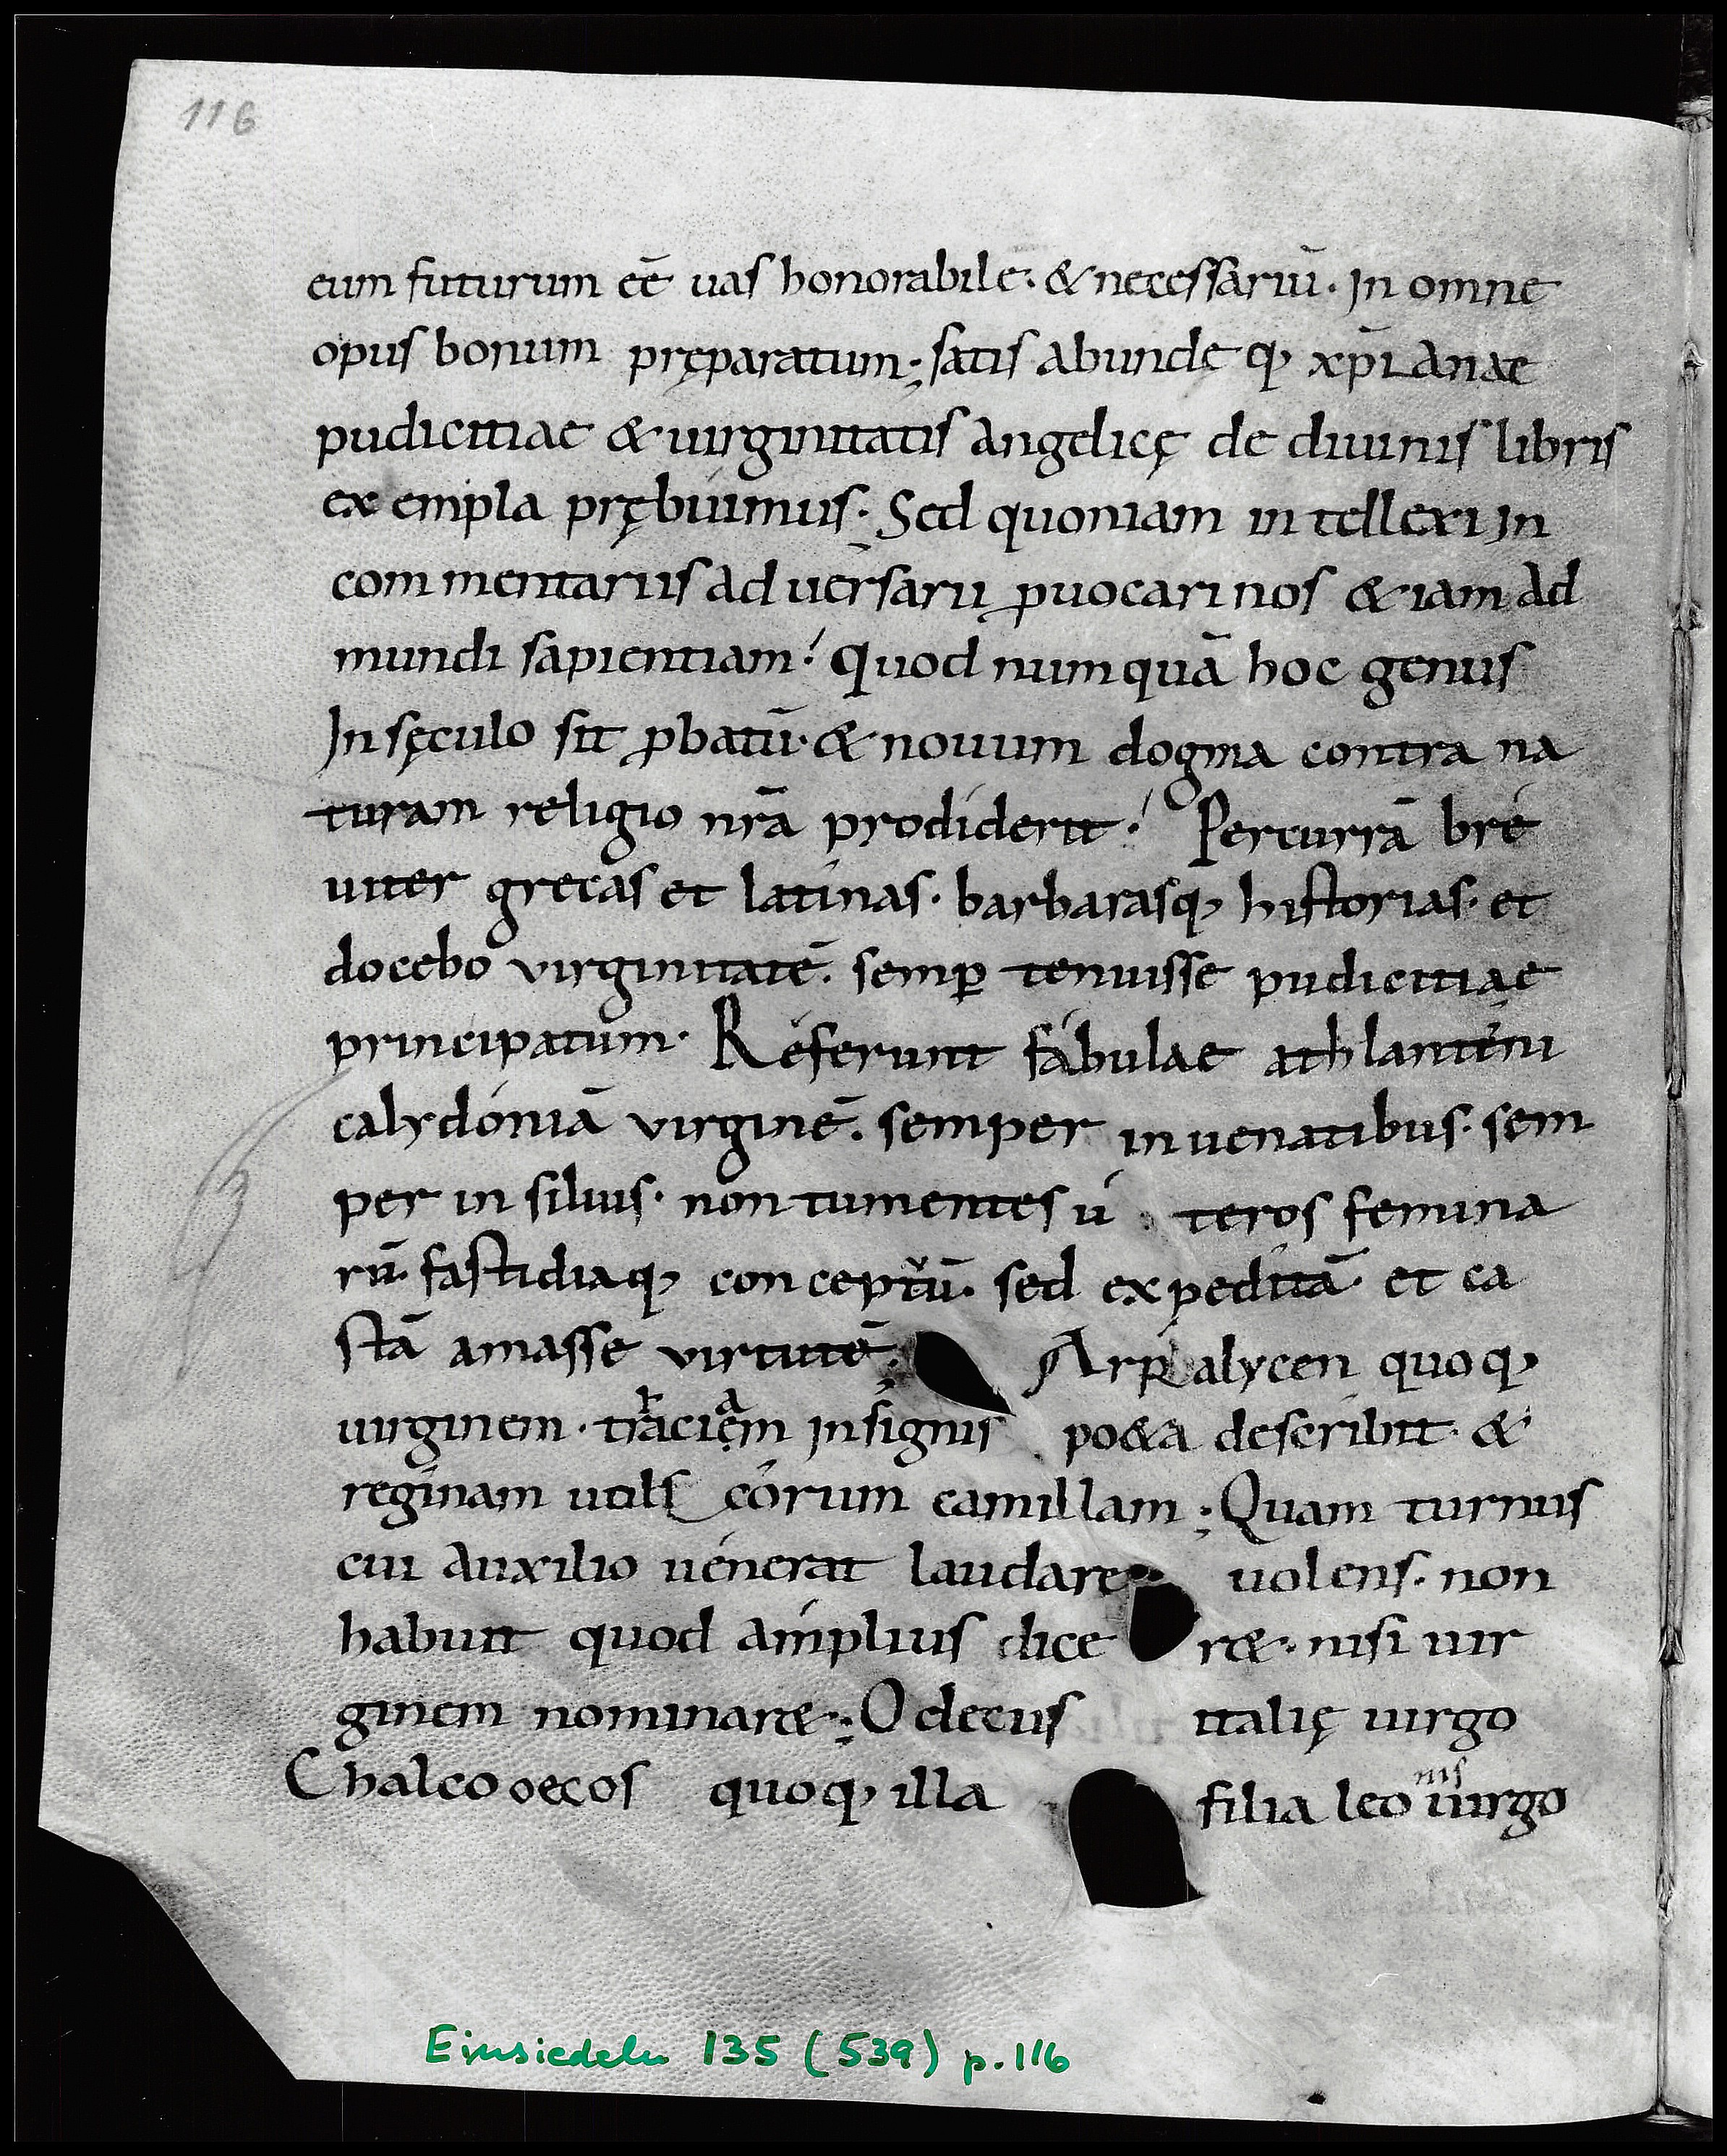 116
eum futurum eē uas honorabile. & necessariū. In omne
opus bonum pręparatum; satis abundę q; xp̄ianae
pudicitiae & uirginitatis angelicę de diuinis libris
ex empla prębuimus. Sed quoniam in tellexi In
com mentariis ad uersarii ꝓuocari nos & iam ad
mundi sapientiam. Quod num quā hoc genus
In sęculo sit ꝓbatū. & nouum dogma contra na
turam religio nr̄a prodiderit. Percurrā bre
uiter grecas et latinas. barbarasq; historias. et
docebo virginitatē. semꝑ tenuisse pudicitiae
principatum. Referunt fabulae athlanteni
calydóniā virginē. semper in uenatibus. sem
per in siluis. non tumentes ú teros femina
rū. fastidiaq; con ceptuū. sed ex peditā. et ca
stā amasse virtutē; Arpalycen quoq;
uirginem. trhacięam Insignis po&a describit. &
reginam uols corum camillam; Quam turnus
cui auxilio uénerat laudare uolens. non
habuit quod amplius dice r&. nisi uir
ginem nominar&; O decus italię uirgo
Chalco oecos quoq; illa filia leonis uirgo
Einsiedeln 135 (539) p. 116